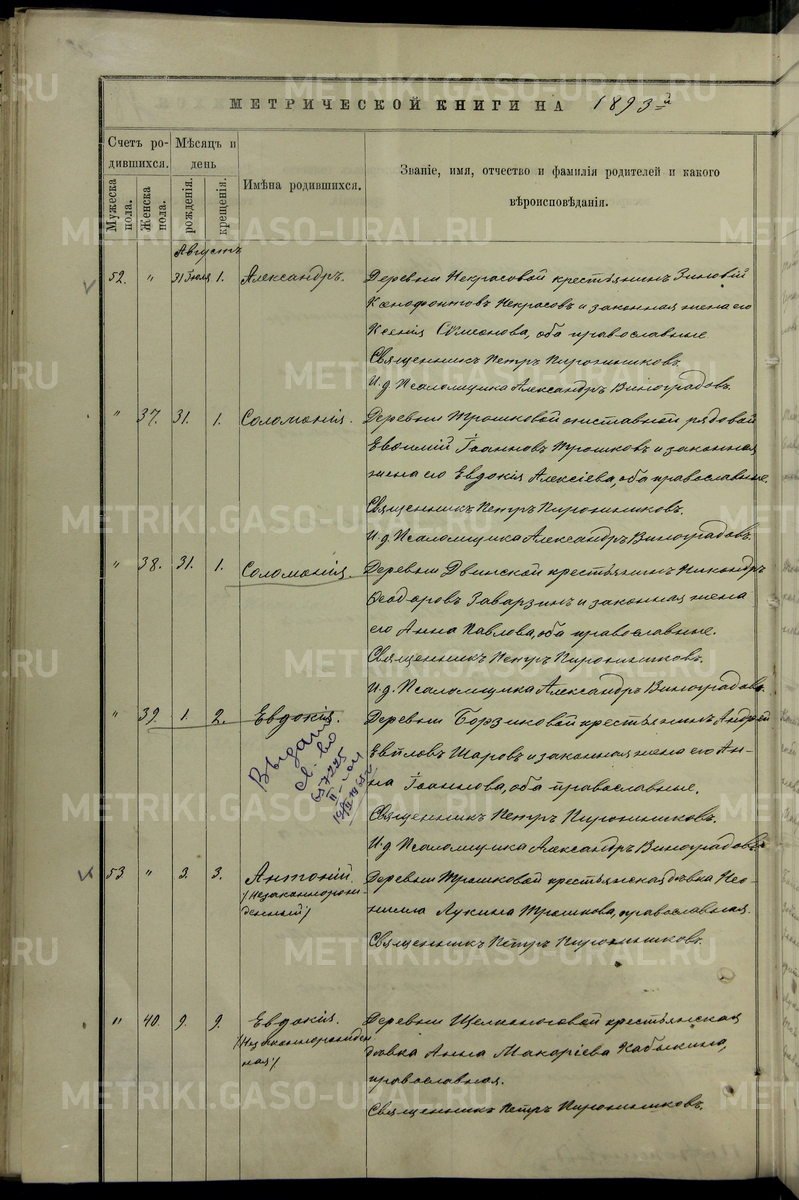 МЕТРИЧЕСКОЙ КНИГИ НА 1893 й
Счетъ ро-
дившихся.
Мѣсяцъ и
день
Мужеска
пола.
Женска
пола.
рожденія.
крещенія.
Имѣна родившихся.
Званіе, имя, отчество и фамилія родителей и какого
вѣроисповѣданія.
Августъ
52. " 31 Іюля 1. Александръ. Деревни Некрасовой крестьянинъ Зиновій
Ксенофонтовъ Некрасовъ и законная жена его
Ксенія Симеонова, оба православные
Священникъ Петръ
И.д. Псаломщика Александръ Виноградовъ.
" 37. 31. 1. Соломонія. Деревни Трошковой отставной рядовой
Евѳимій Іоанновъ Трошковъ и законная
жена его Евдокія Алексіева, оба православные.
Священникъ Петръ
И.д. Псаломщика Александръ Виноградовъ.
" 38. 31. 1. Соломонія. Деревни Двинской крестьянинъ Никандръ
Ѳеодоровъ Заварзинъ и законная жена
его Анна Павлова, оба православные.
Священникъ Петръ
И.д. Псаломщика Александръ Виноградовъ.
" 39. 1. 2. Евдокія. Деревни Борзиковой крестьянинъ Андрей
Шаровъ и законная жена его Ан-
на Іоаннова, оба православные.
Священникъ Петръ
И.д. Псаломщика Александръ Виноградовъ
Выдан
св. во
53 " 3. 3. Антоній. Деревни Трошковой крестьянская дѣвка Нео-
/Незаконнорож-
денный/
нилла Лукина Трошкова, православная.
Священникъ Петръ
" 40. 9. 9. Евдокія. Деревни Щелконоговой крестьянская
/Незаконнорожден-
ная/
дѣвка Анна Макаріева Кабыкина,
православная.
Священникъ Петръ
METRIKI.GASO-URAL.RU